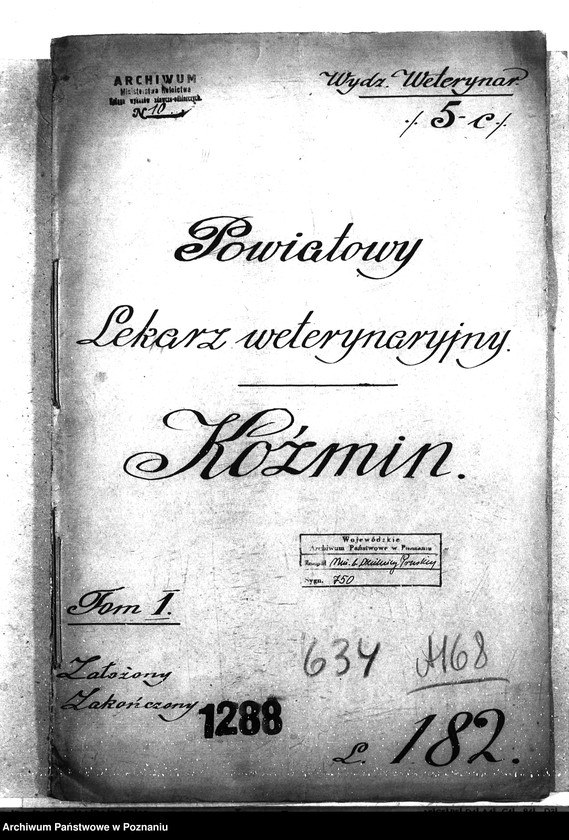 ARCHIWUM
Ministerstwa Rolnictwa
№ 10
Wydz. Weterynar.
·/. 5-c·/.
Powiatowy
Lekarz weterynaryjny.
Koźmin.
Wojewódzkie
Archiwum Państwowe w Poznaniu
Zespół Min. b. Dzielnicy Pruskiej
Sygn. 750
Tom 1.
634 A168
Założony
Zakończony
1288
L. 182.
Archiwum Państwowe w Poznaniu